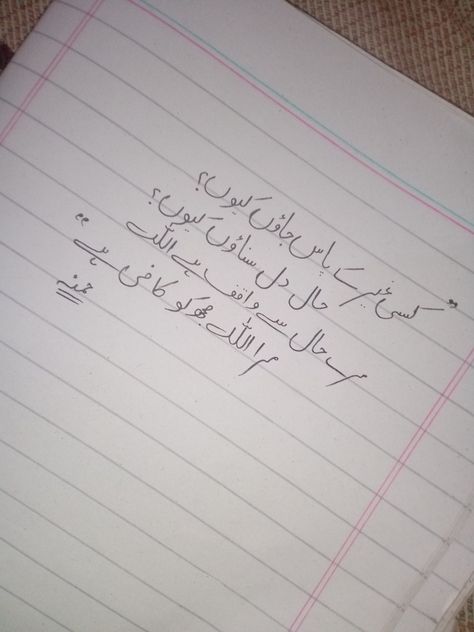 "کسی غیر کے پاس جاؤں کیوں؟
حال دل سناؤں کیوں؟
مرے حال سے واقف ہے اللہ
مرا اللہ مجھ کو کافی ہے"
حمنہ